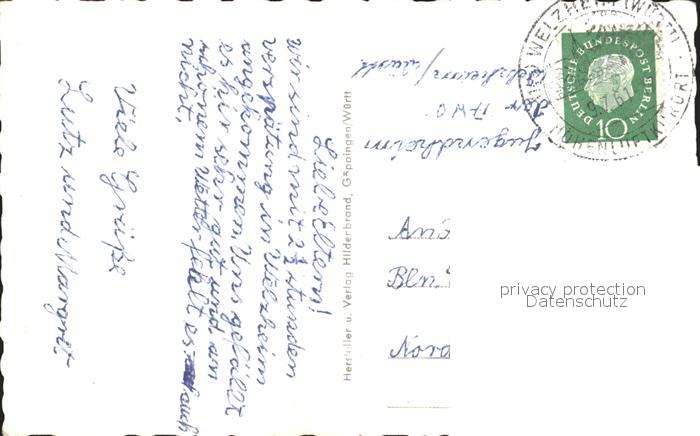 Liebe Eltern!
wir sind mit 2½ stunden
verspätung in Welzheim
angekommen. Uns gefällt
es hir sehr gut und an
schönem Wetter fehlt es auch
nicht.
Viele Grüße
Lutz und Margret
Hersteller u. Verlag Hilderbrand, Göppingen/Württ
Jugendheim
der AWO
Welzheim/Württ
DEUTSCHE BUNDESPOST BERLIN
10
WELZHEIM (WÜRTT)
HÖHENLUFTKURORT
Bln.
Nord
privacy protection
Datenschutz